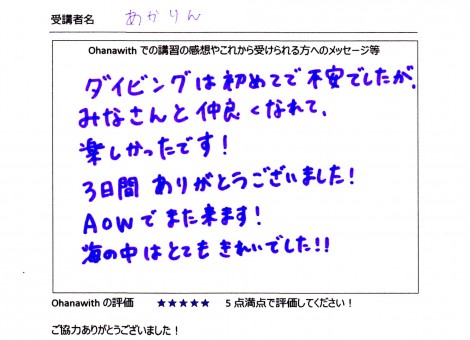 受講者名 あかりん
Ohanawith での講習の感想やこれから受けられる方へのメッセージ等
ダイビングは初めてで不安でしたが、
みなさんと仲良くなれて、
楽しかったです！
3日間 ありがとうございました！
AOWでまた来ます！
海の中はとてもきれいでした！！
Ohanawith の評価 ★★★★★ 5 点満点で評価してください！
ご協力ありがとうございました！